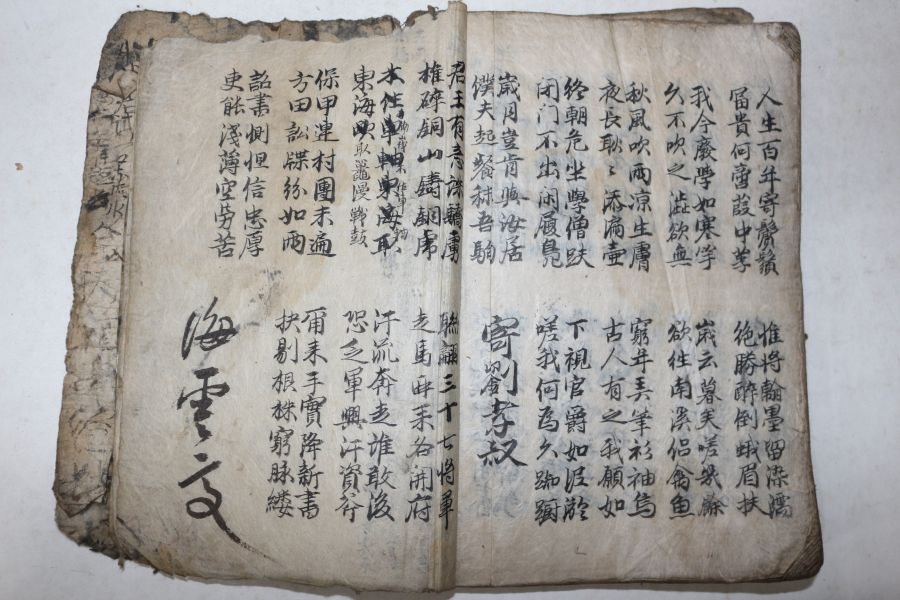 人生百年寄鬢鬚
冨貴何啻葭中莩
惟將翰墨留染濡
絶勝醉倒蛾眉扶
我今廢學如寒竽
久不吹之澁欲無
歲云暮矣嗟幾餘
欲往南溪侶禽魚
秋風吹雨凉生膚
夜長耿〻添漏壺
窮年弄筆衫袖烏
古人有之我願如
終朝危坐學僧趺
閉门不出閑履鳧
下視官爵如泥淤
嗟我何爲久踟躕
歲月豈肯與汝居
僕夫起餐秣吾駒
寄劉孝叔
君王有意誅驕虜
椎碎銅山鑄銅虎
聯翩三十七將軍
走馬西来各開府
車軸東海取
東海取鼉慢戰鼓
汗流奔走誰敢後
恐乏軍興汗資斧
保甲連村團未遍
方田訟牒紛如雨
爾来手實降新書
抉剔根株窮脉縷
詔書惻怛信忠厚
吏能淺薄空勞苦
海雲